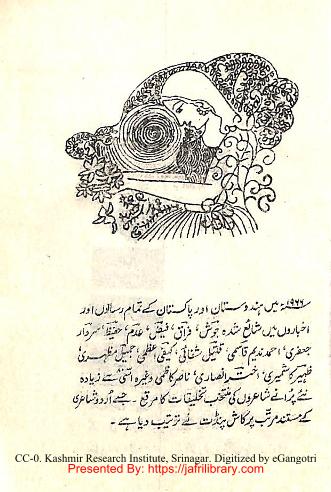 ۱۹۶۶ء میں ہندوستان اور پاکستان کے تمام رسالوں اور
اخباروں میں شائع شدہ جوش، فراق، فیض، عدم، حفیظ، سردار
جعفری، احمد ندیم قاسمی، قتیل شفائی، کیفی اعظمی، جمیل مظہری،
ظہیر کاشمیری، اختر انصاری، ناصر کاظمی وغیرہ اسّی سے زیادہ
نئے پرانے شاعروں کی منتخب تخلیقات کا مرقع۔ جسے اُردو شاعری
کے مستند مرتب پرکاش پنڈت نے ترتیب دیا ہے۔
CC-0. Kashmir Research Institute, Srinagar. Digitized by eGangotri
Presented By: https://jafrilibrary.com